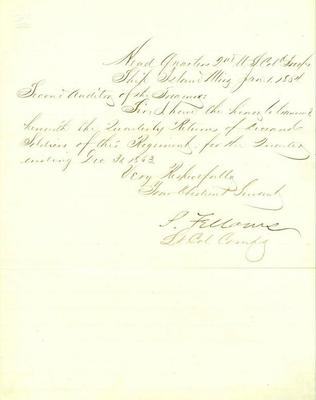 Head Quarters 2nd U.S. Col'd Troops
Ship Island Miss Jan 1st 1864
Second Auditor of the Treasury
Sir I have the honor to transmit
herewith the Quarterly Returns of Deceased
Soldiers of this Regiment for the Quarter
ending Dec 31 1863
Very Respectfully
Your Obedient Servant
S. Fellows
Lt Col Comdg